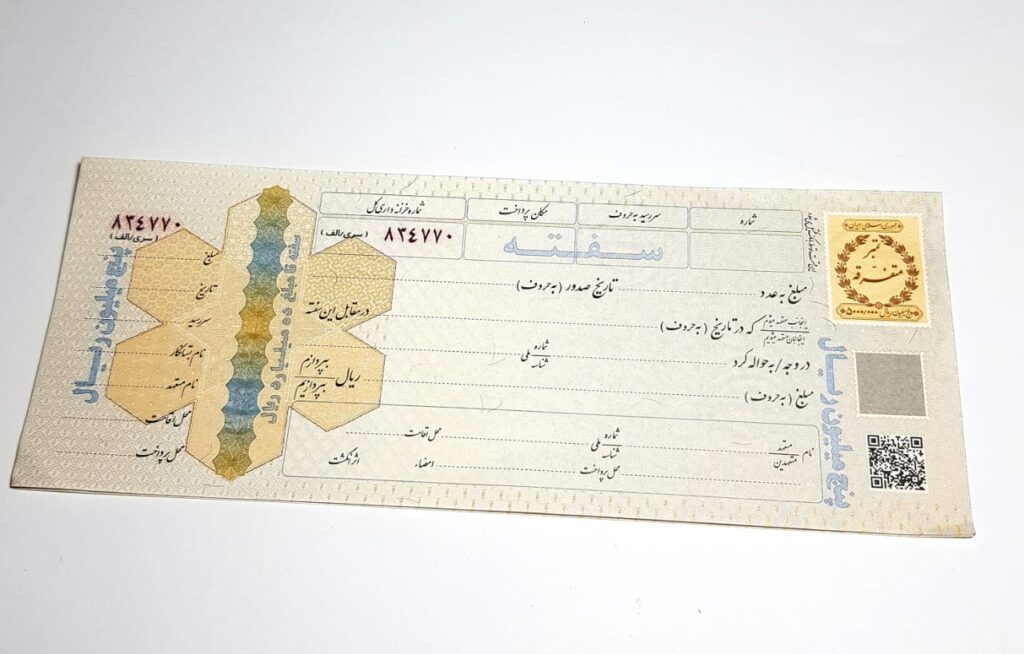 شماره
سررسید به حروف
مکان پرداخت
شماره خزانه داری کل
سفته
۸۳٤۷۷۰
(سری/الف)
مبلغ به عدد
تاریخ صدور (به حروف)
اینجانب متعهد میشوم
اینجانبان متعهد میشویم
که در تاریخ (به حروف)
در مقابل این سفته
در وجه / به حواله کرد
شماره ملی
شناسه
مبلغ (به حروف)
ریال
بپردازم
بپردازیم
نام
متعهد
متعهدین
شماره ملی
شناسه
محل اقامت
محل پرداخت
امضاء
اثر انگشت
جمهوری اسلامی ایران
تمبر
متفرقه
پنج میلیون ریال
۵۰۰۰/۰۰۰
پنج میلیون ریال
سفته تا مبلغ ده میلیارد ریال
۸۳٤۷۷۰
(سری/الف)
مبلغ
تاریخ
سررسید
نام بستانکار
نام متعهد
محل اقامت
محل پرداخت
پنج میلیون ریال